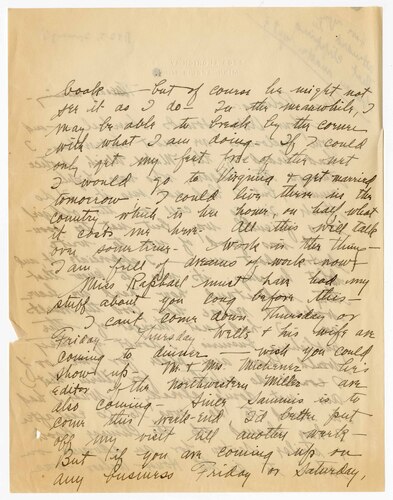 book — but of course he might not
see it as I do — In the meanwhile, I
may be able to break by the corner
with what I am doing. If I could
only get my feet free of the net
I would go to Virginia & get married
tomorrow. I could live there in the
country which is her home, on half what
it costs me here. All this will talk
over sometime. Work is the thing —
I am full of dreams of work now —
Miss Raphael must have had my
stuff about you long before this —
I can't come down Thursday or
Friday — Thursday Wells & his wife are
coming to dinner — wish you could
show up. Mr & Mrs. Michener — he's
Editor of the Northwestern Miller — are
also coming. Since Sammis is to
come this week-end I'd better put
off my visit till another week —
But if you are coming up on
any business Friday or Saturday,